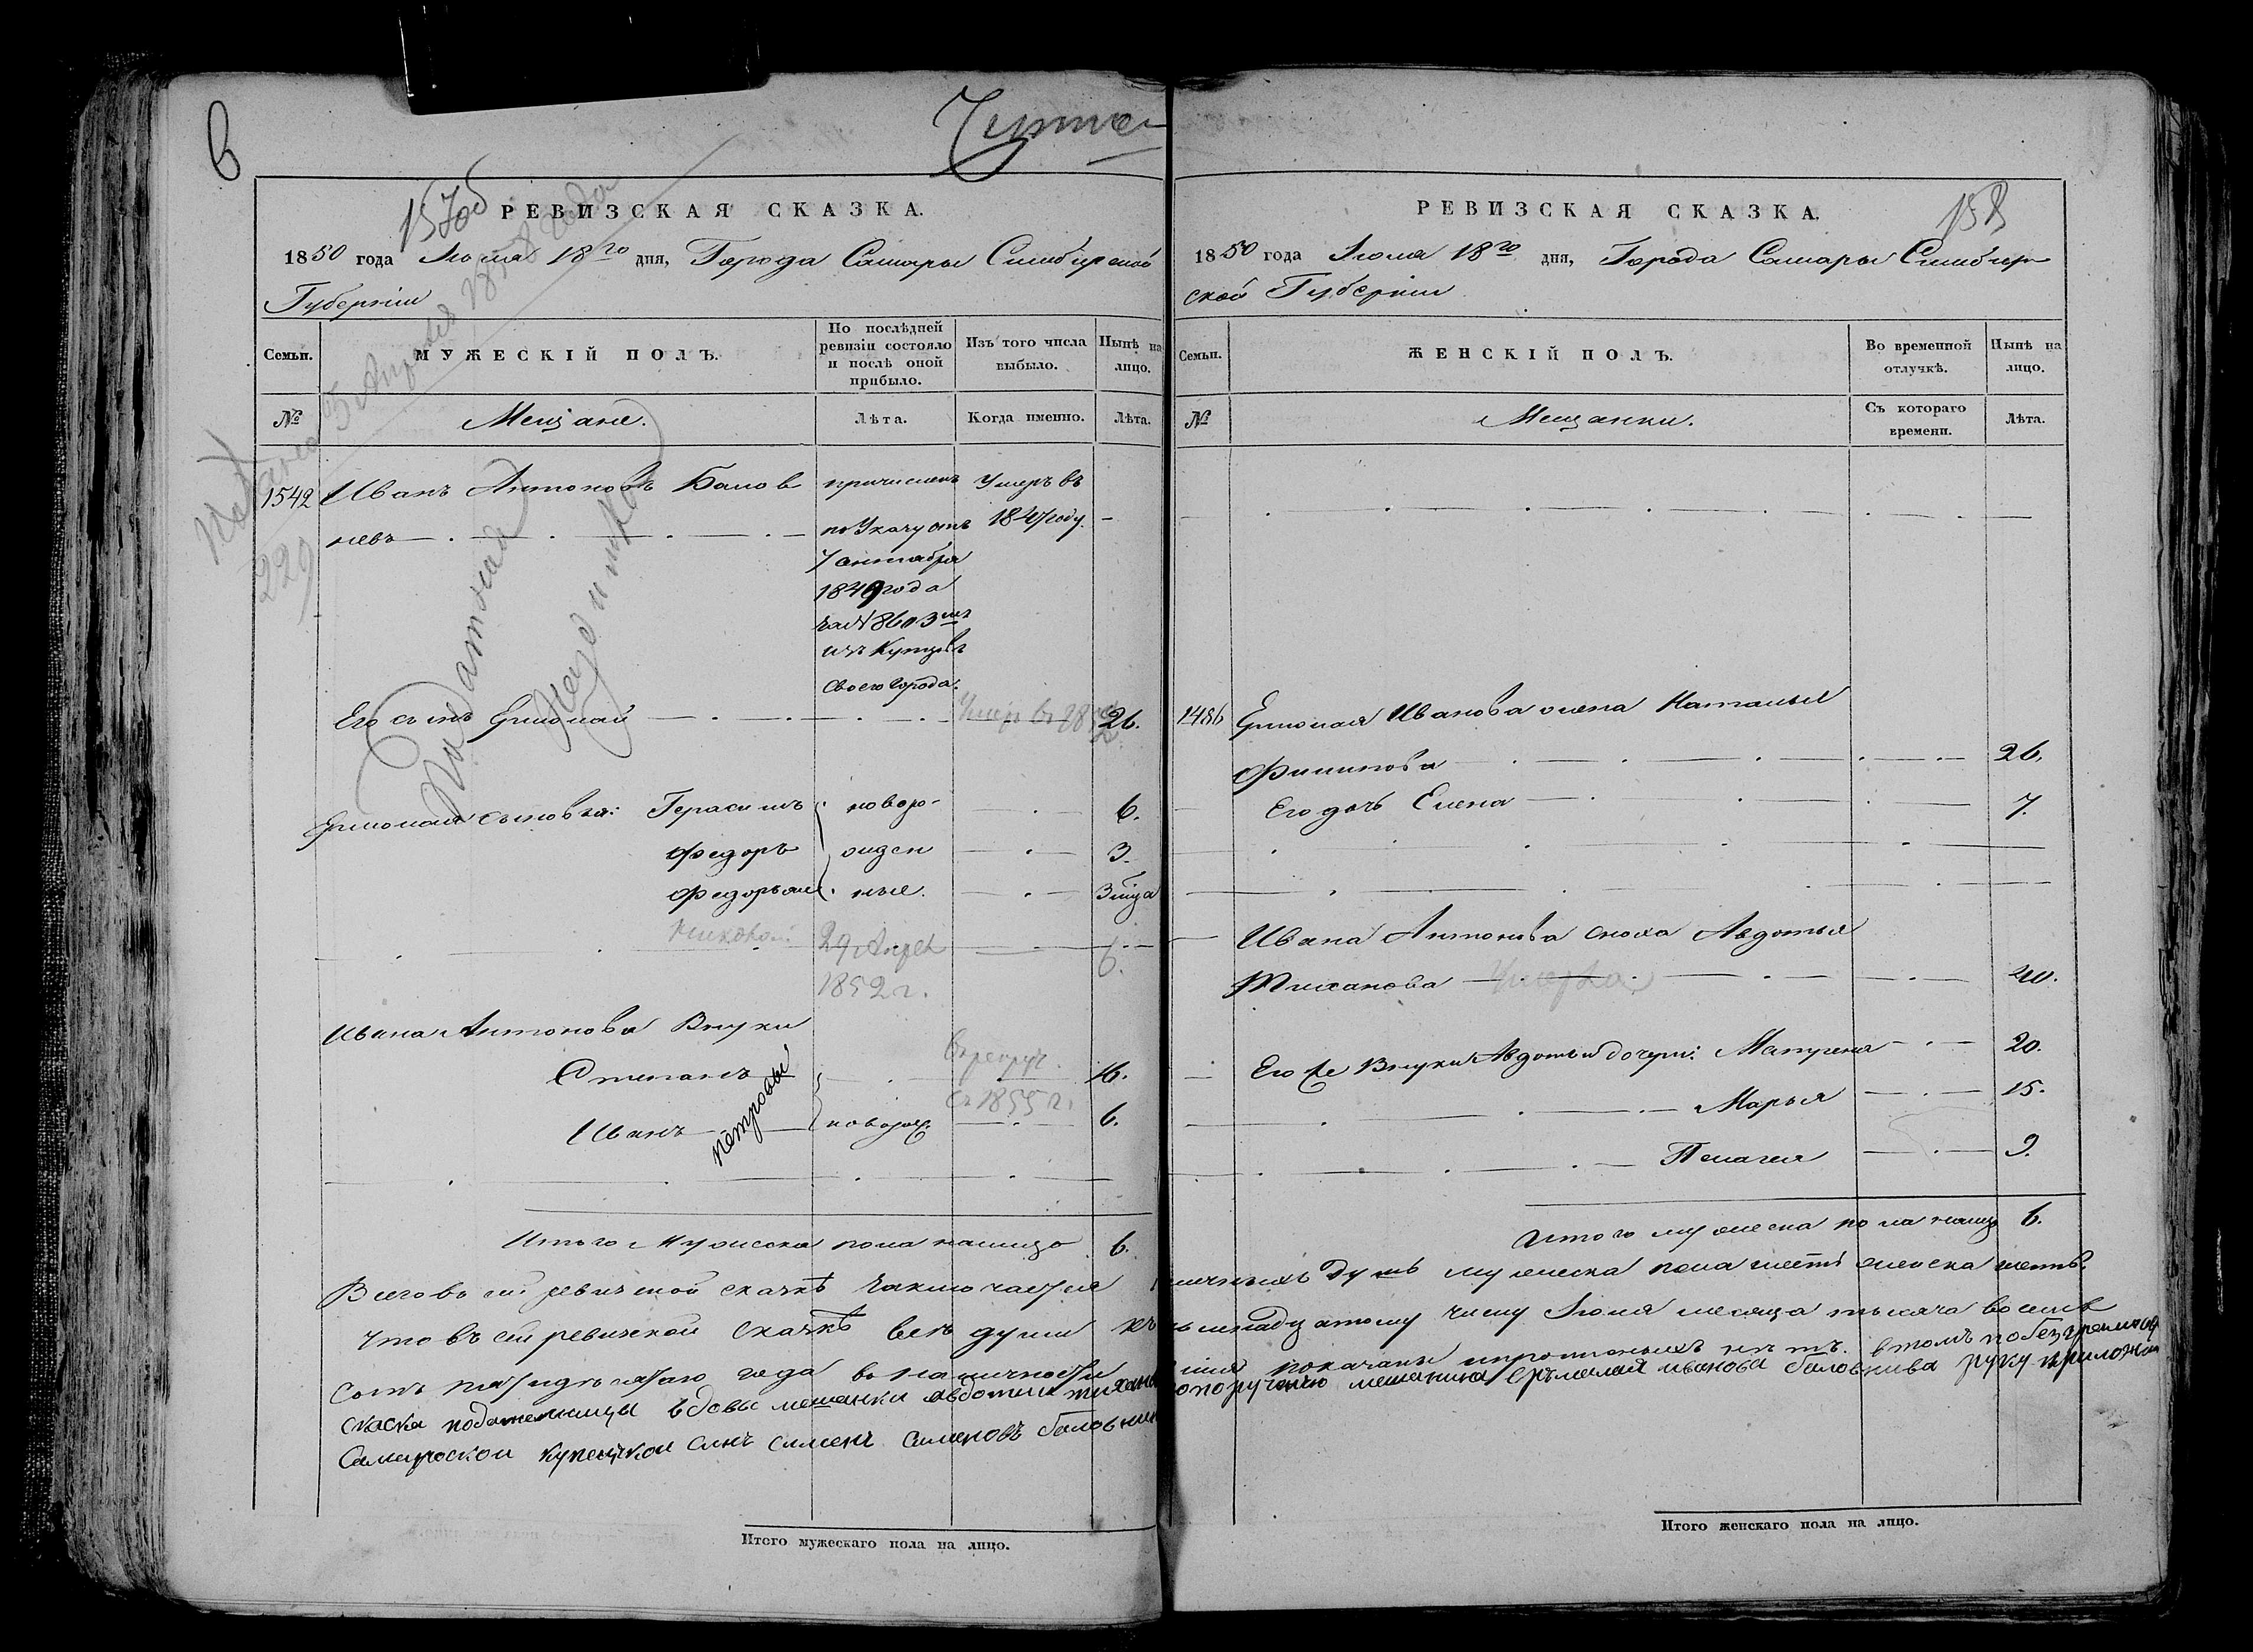 6
157об
РЕВИЗСКАЯ СКАЗКА.
1850 года Июля 18го дня, Города Самары Симбирской
Губернии
Семьи.
МУЖЕСКІЙ ПОЛЪ.
По послѣдней
ревизіи состояло
и послѣ оной
прибыло.
Изъ того числа
выбыло.
Нынѣ на
лицо.
№
Мещане.
Лѣта.
Когда именно.
Лѣта.
5 Апреля 1858 года
229
1542 Иванъ Антоновъ Балов
невъ
причисленъ
по Указу отъ
7 сентября
1849 года
за № 8603мъ
изъ Купцовъ
своего города.
Умеръ въ
1847 году.
Его сынъ Ермолай 26.
Умеръ въ
Ермолая сыновья: Герасимъ новоро- 6.
Федоръ жден 3.
Федоръ же ные. 3 мца
Николай 29 Апрел
1852 г. 6.
Ивана Антонова Внуки
Степанъ 16.
в рекруч.
въ 1855 г.
Иванъ новорож. 6.
петровы
Итого Мужеска пола налицо 6.
РЕВИЗСКАЯ СКАЗКА.
158
1850 года Июля 18го дня, Города Самары Симбир
ской Губернии
Семьи.
ЖЕНСКІЙ ПОЛЪ.
Во временной
отлучкѣ.
Нынѣ на
лицо.
№
Мещанки.
Съ котораго
времени.
Лѣта.
1486 Ермолая Иванова жена Наталья
Филипова 26.
Его дочь Елена 7.
Ивана Антонова сноха Авдотья
Тиханова Умерла 40.
Его же Внуки Авдотьи дочери: Матрена 20.
Марья 15.
Пелагея 9.
Итого женска пола налицо 6.
Всего въ сей ревизской сказкѣ заключается наличныхъ душъ мужеска пола шесть женска шесть.
что въ сей ревизской сказкѣ всѣ души къ осмнадцатому числу Июля месяца тысяча восемь
сотъ пятидесятаго года въ наличности показаны и прописныхъ нѣтъ. в томъ по безграмот
сказка подательницы вдовы мещанки авдотьи тихановой по поручению мещанина Ермолая иванова баловнева руку приложил
Самарской купецкой сынъ семенъ семеновъ баловнев
Итого мужескаго пола на лицо.
Итого женскаго пола на лицо.